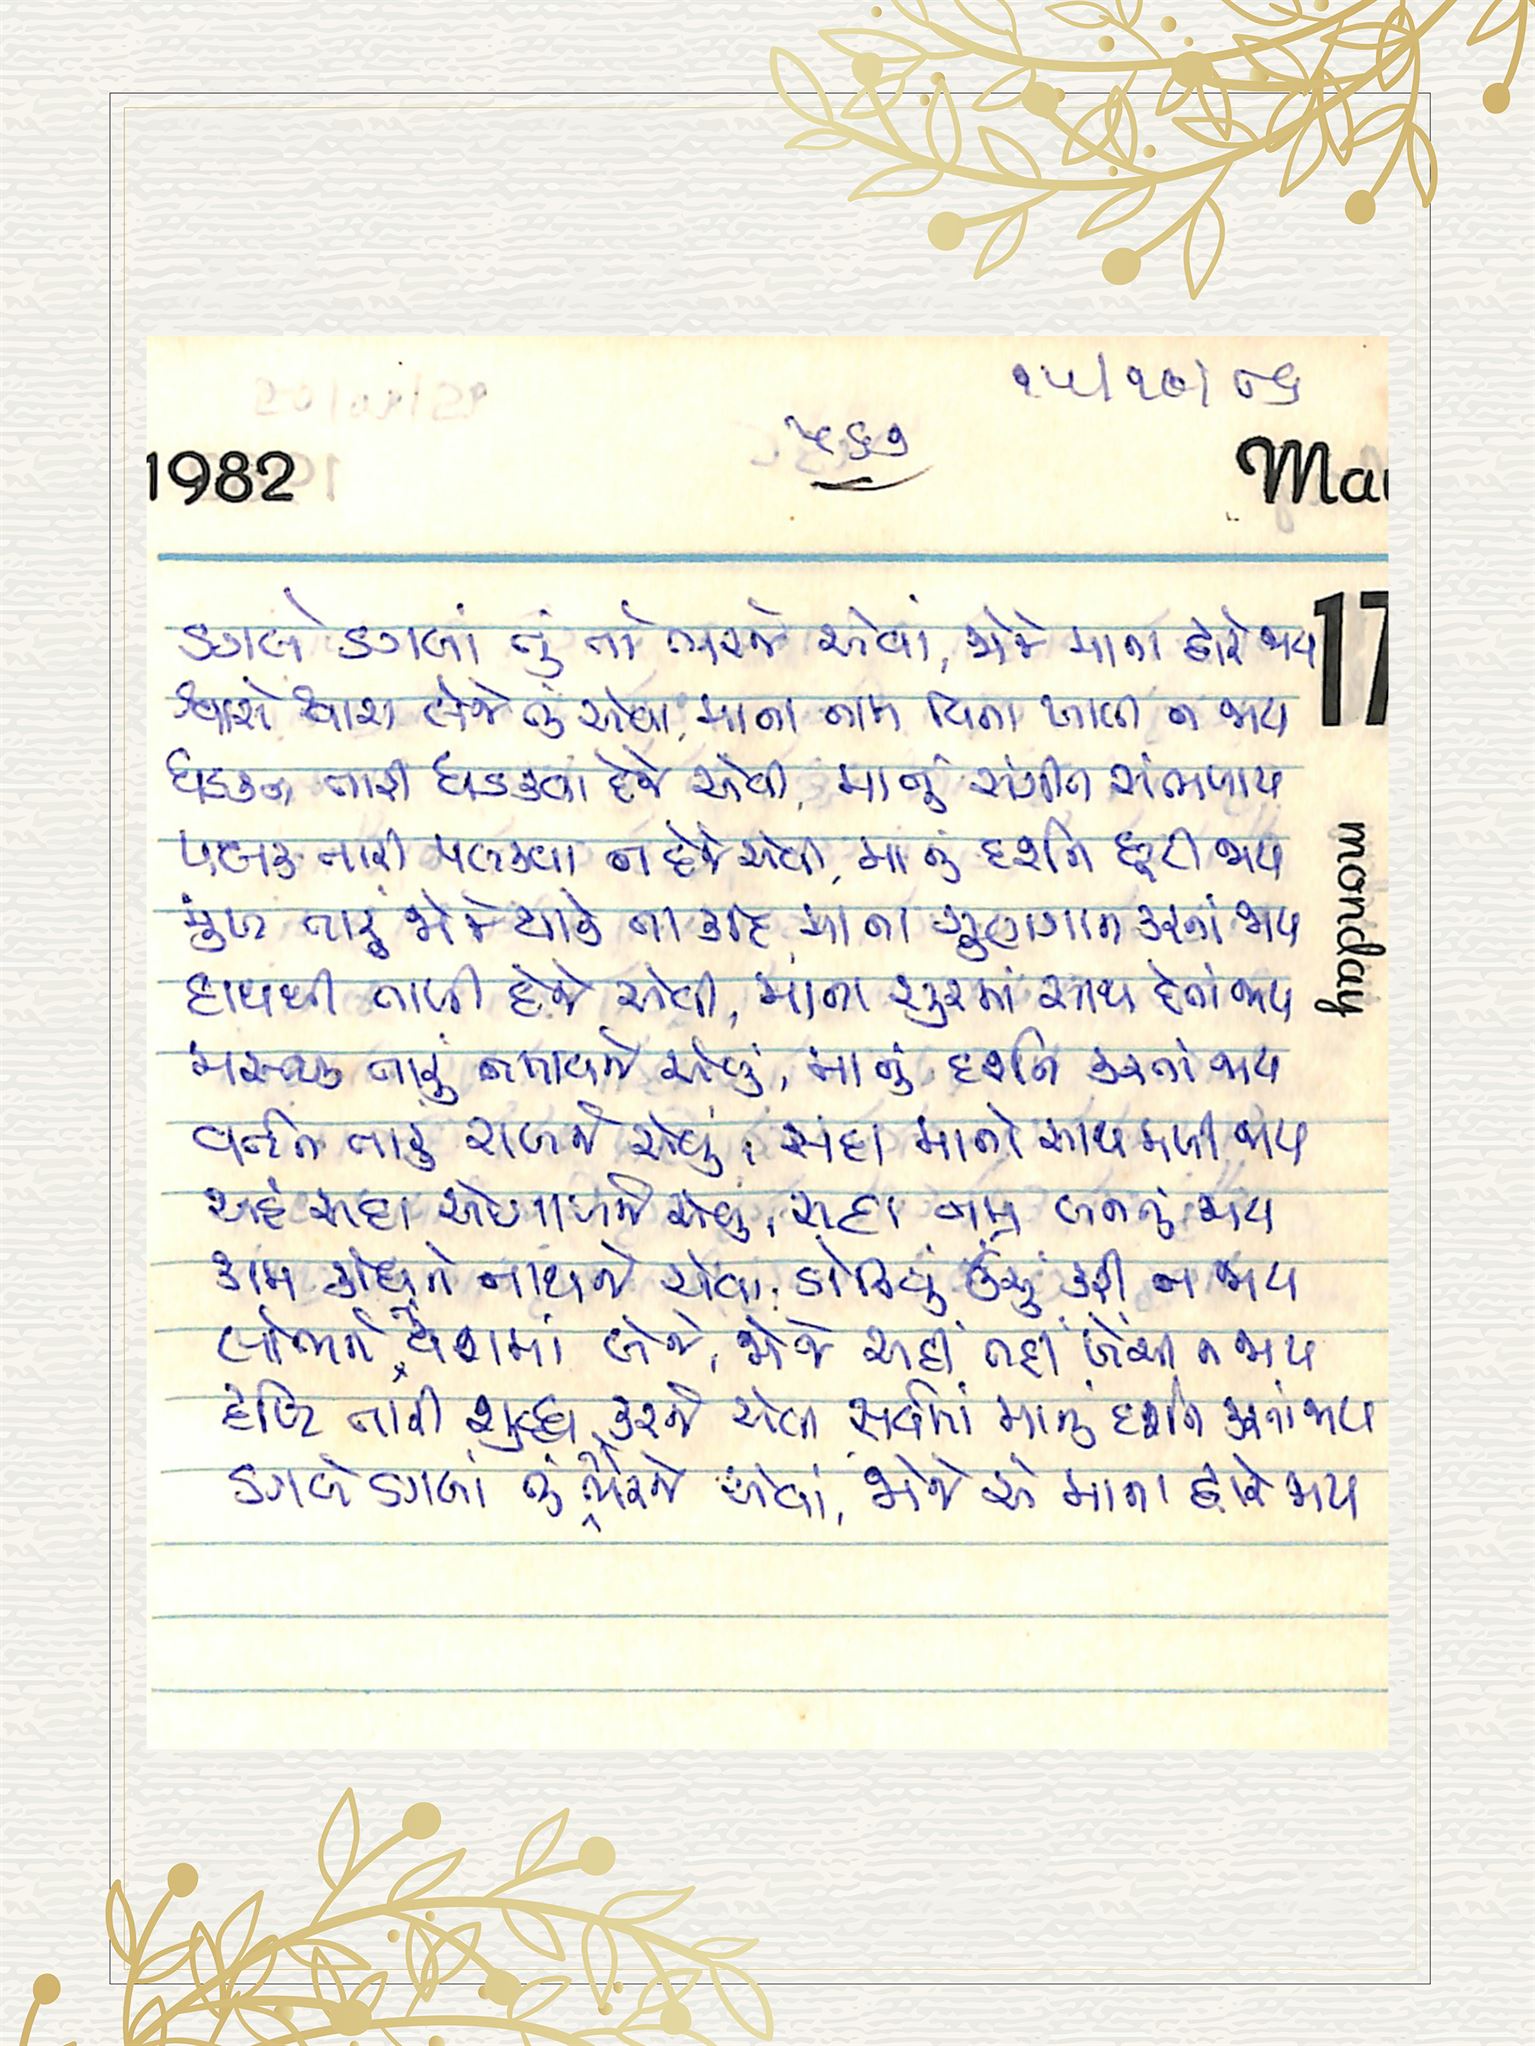 ૧૫/૧૦/૮૬
૫૬૭
1982
Mar
17
monday
ડગલે ડગલાં તું તો ભરજે એવાં, જોજે માના દ્વારે જાય
શ્વાસે શ્વાસ લેજે તું એવા, માના નામ વિના ખાલી ન જાય
ધડકન તારી ધડકવા દેજે એવી, માનું સંગીત સંભળાય
પલક તારી પલકવા ન દેજે એવી, માનું દર્શન છૂટી જાય
મુખ તારું જોજે થાકે ના કદિ, માના ગુણગાન કરતાં જાય
હાથથી તાળી દેજે એવી, માના સુરમાં સાથ દેતાં જાય
મસ્તક તારું નમાવજે એવું, માનું દર્શન કરતાં જાય
વર્તન તારું રાખજે એવું, સદા માનો સાથ મળી જાય
અહં સદા ઓગાળજે એવું, સદા નમ્ર બનતું જાય
કામ ક્રોધને નાથજે એવા, ડોકિયું ઊંચું કરી ન જાય
લોભને તું વશમાં લેજે, જોજે અહીં તહીં ખેંચી ન જાય
દૃષ્ટિ તારી શુદ્ધ કરજે એવી સર્વમાં માનું દર્શન કરતાં જાય
ડગલે ડગલાં તું ભરજે એવાં, જોજે એ માના દ્વારે જાય